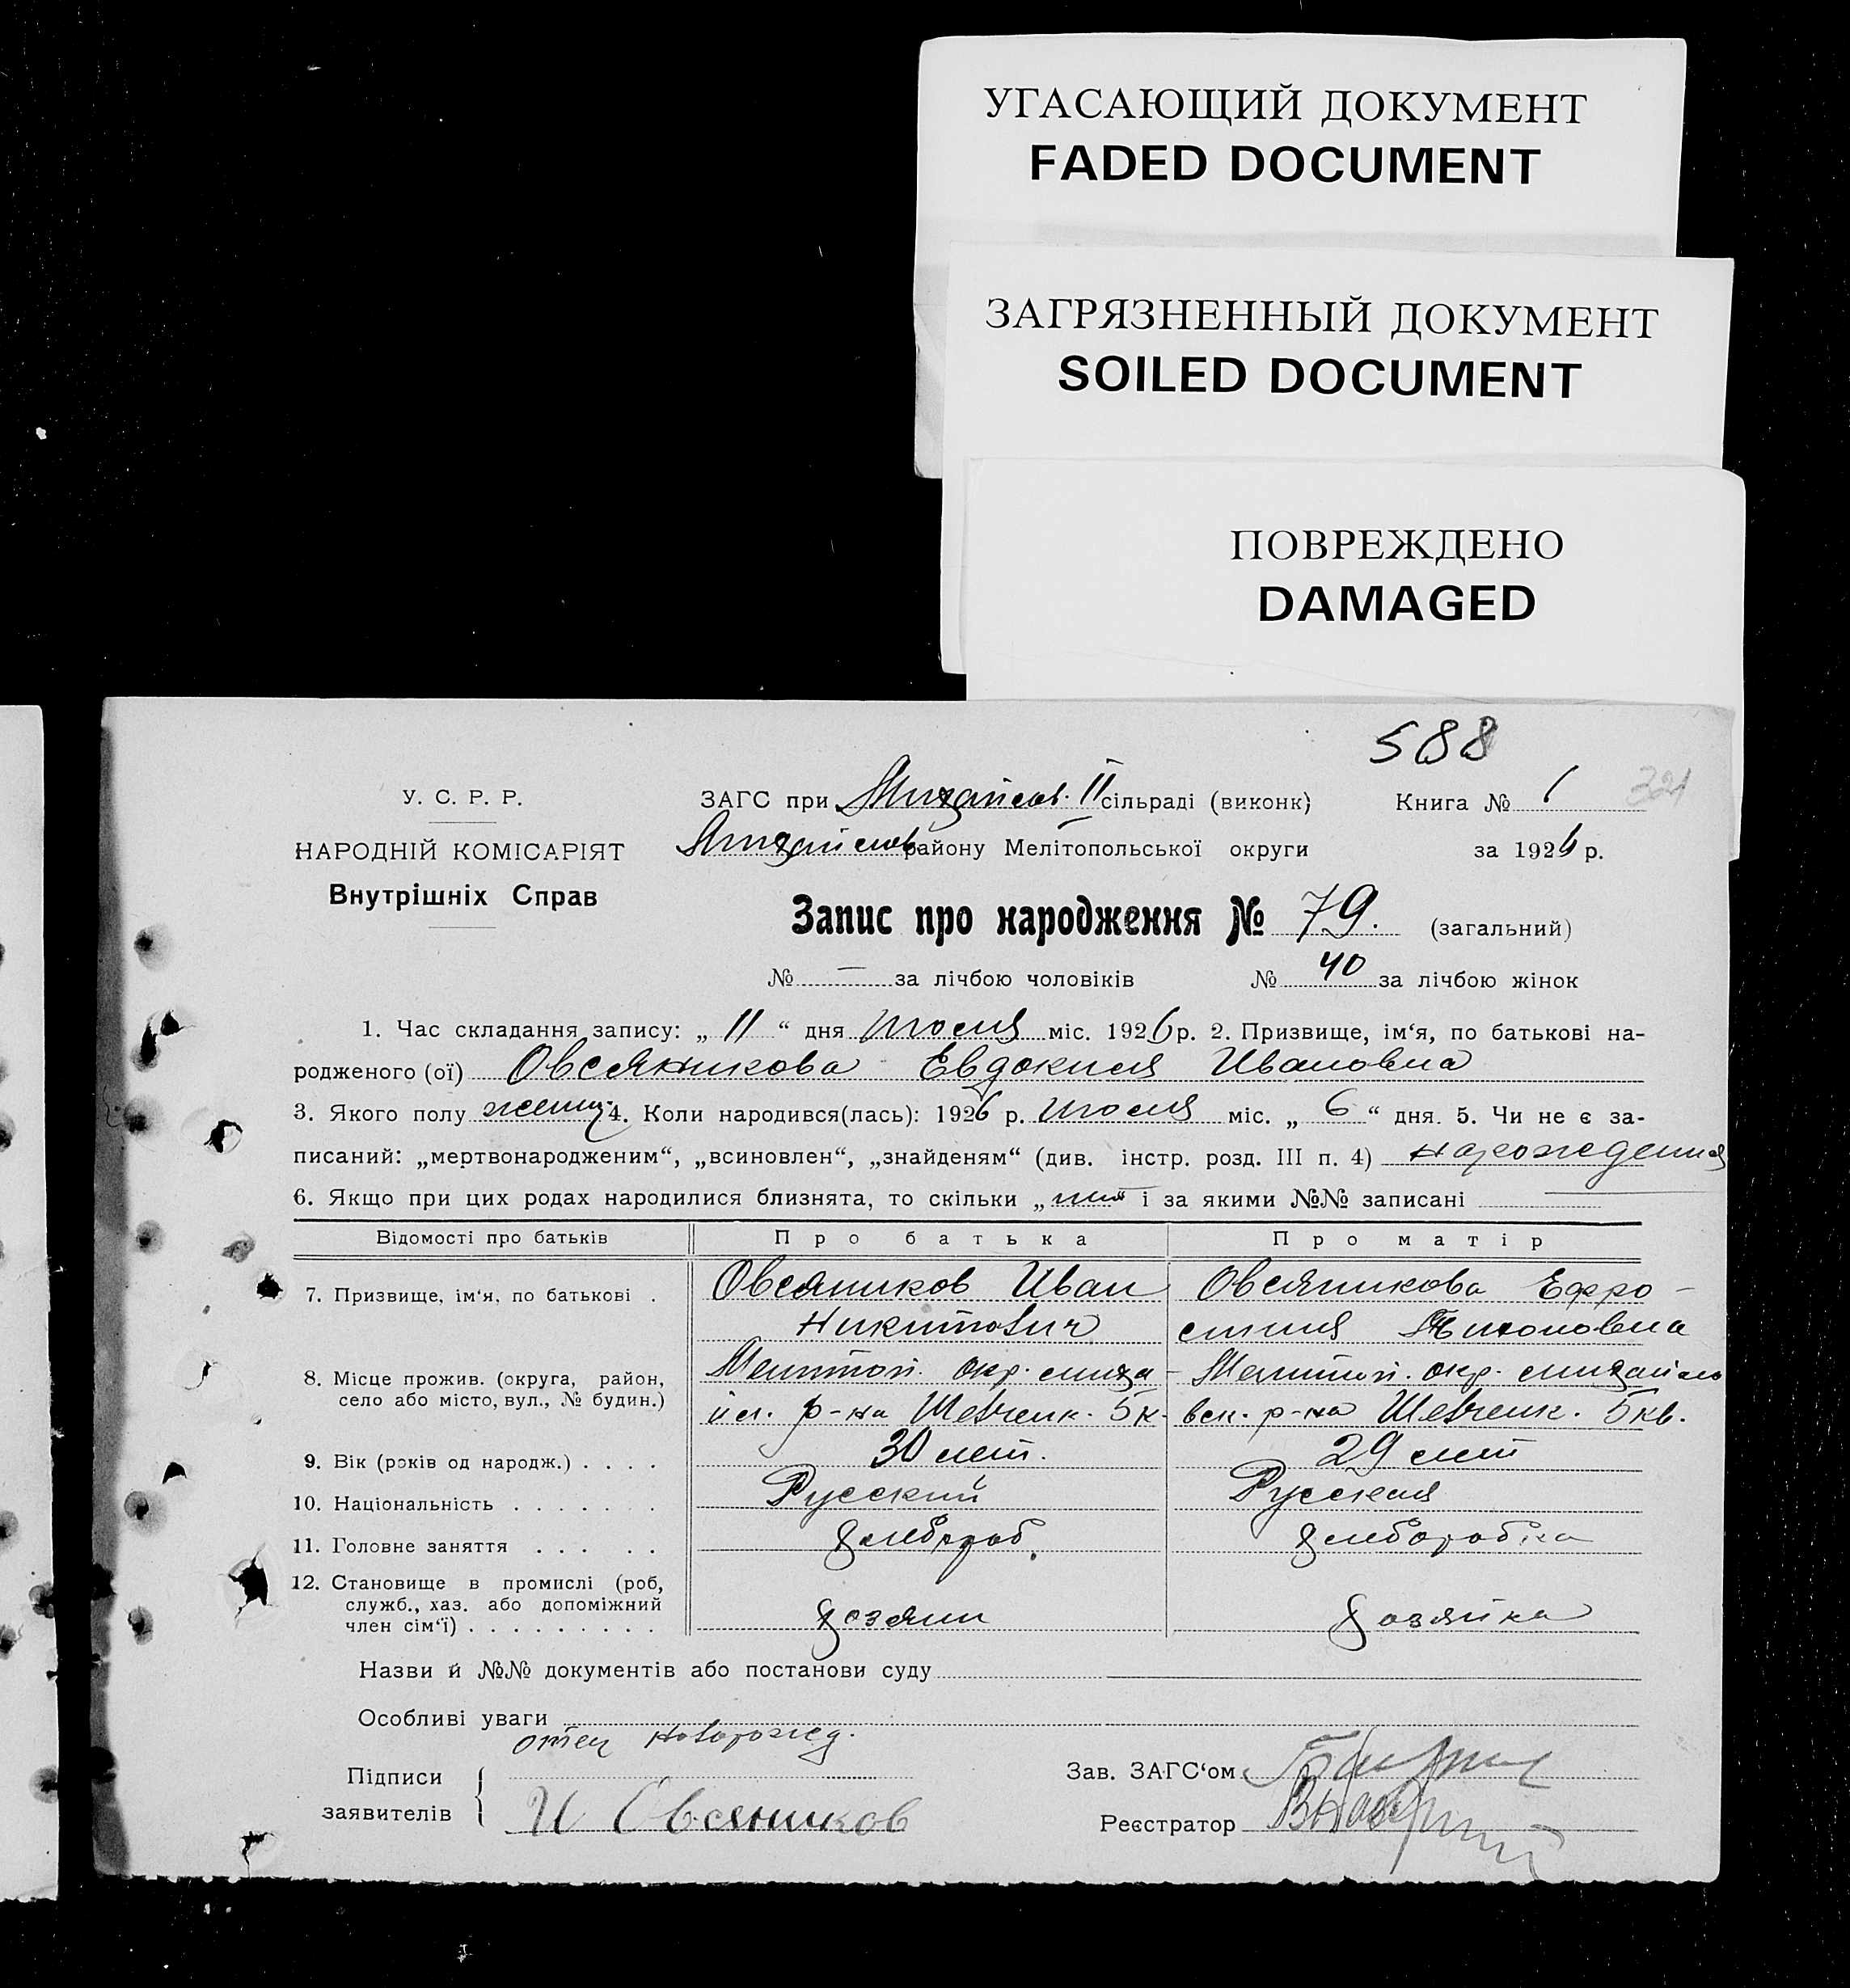 УГАСАЮЩИЙ ДОКУМЕНТ
FADED DOCUMENT
ЗАГРЯЗНЕННЫЙ ДОКУМЕНТ
SOILED DOCUMENT
ПОВРЕЖДЕНО
DAMAGED
588
321
У. С. Р. Р.
НАРОДНІЙ КОМІСАРІЯТ
Внутрішніх Справ
ЗАГС при II сільраді (виконк)
Книга № 1
району Мелітопольської округи
за 1926 р.
Запис про народження № 79. (загальний)
№ — за лічбою чоловіків № 40 за лічбою жінок
1. Час складання запису: „ 11 “ дня Июля міс. 1926 р. 2. Призвище, ім‘я, по батькові на-
родженого (ої) Овсянникова Евдокия Ивановна
3. Якого полу 4. Коли народився(лась): 1926 р. Июля міс. „ 6 “ дня. 5. Чи не є за-
писаний: „мертвонародженим“, „всиновлен“, „знайденям“ (див. інстр. розд. III п. 4)
6. Якщо при цих родах народилися близнята, то скільки „ “ і за якими №№ записані
Відомості про батьків Про батька Про матір
7. Призвище, ім‘я, по батькові . Овсяников Иван Овсяникова Ефро-
Никитович синия Тихоновна
8. Місце прожив. (округа, район, село або місто, вул., № будин.) Мелитоп. окр. михай- Мелитоп. окр. михайло
р-на Шевченк. 5 к. вск. р-на Шевченк. 5 кв.
9. Вік (років од народж.) . . . . 30 лет. 29 лет
10. Національність . . . . . . Русский Русская
11. Головне заняття . . . . . хлебороб. хлеборобка
12. Становище в промислі (роб,
служб., хаз. або допоміжний
член сім‘ї) . . . . . . . . . хозяин хозяйка
Назви й №№ документів або постанови суду
Особливі уваги
отец новорожд.
Підписи
заявителів
И Овсяников
Зав. ЗАГС‘ом
Реєстратор